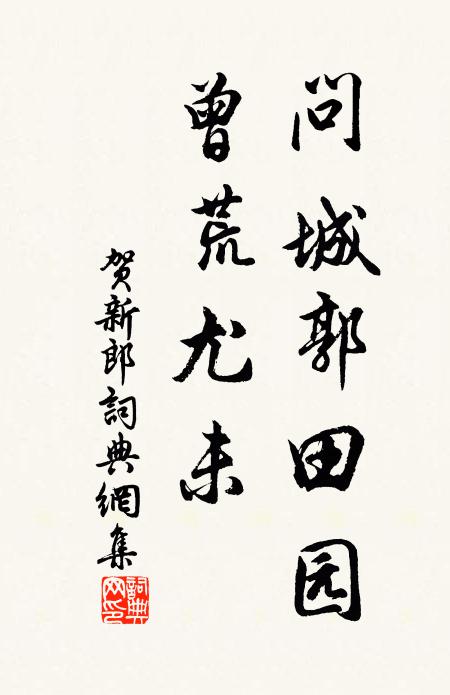 问城郭田园
曾荒尤未
贺新郎詞典網集
詞典網印